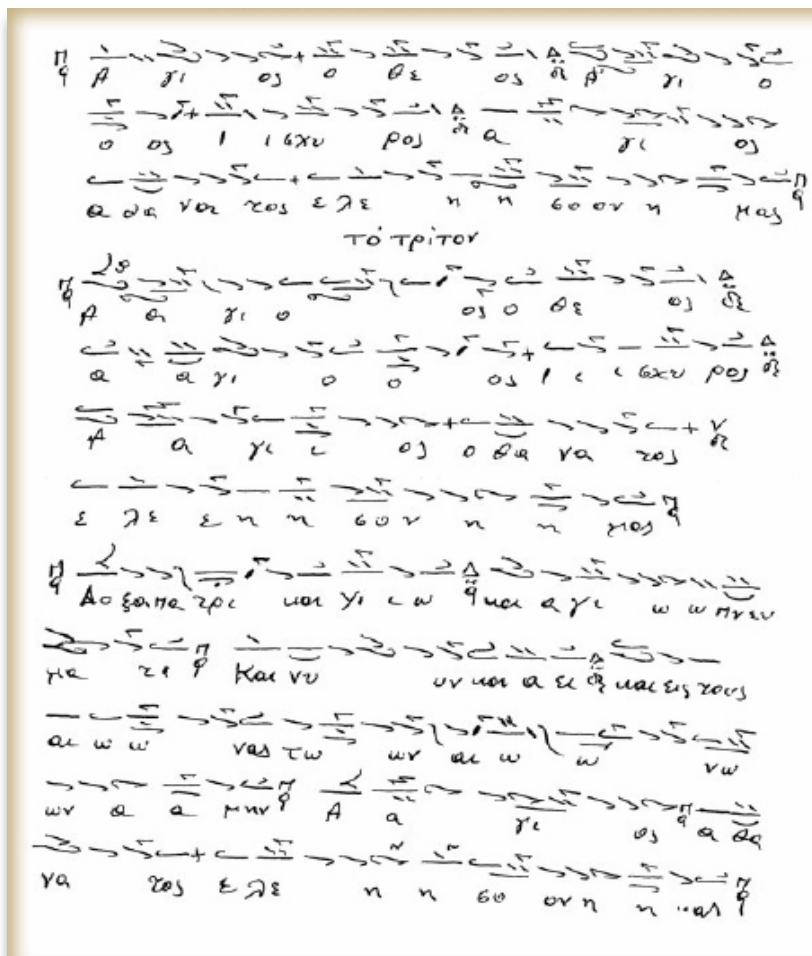 Α γι ος ο θε ος Α γι ο
ο ος Ι ι σχυ ρος α γι ος
α θα να τος ε λε η η σο ον η μας
τὸ τρίτον
Α α γι ο ος ο θε ος
α α γι ο ο ος Ι ι ι σχυ ρος
Α α γι ι ος ο θα να τος
ε λε ε η η σο ν η η μας
Δο ξα πα τρι και Υι ι ω και α γι ω ω πνευ
μα τι Και νυ υν και α ει και εις τους
αι ω ω νας τω ων αι ω ω νω
ων α α μην Α α γι ος α θα
να τος ε λε η η σο ον η η μας